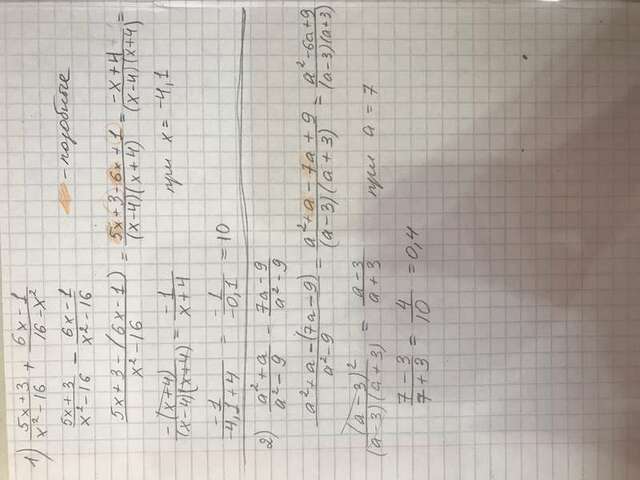 1) (5x+3)/(x²-16) + (6x-1)/(16-x²)
(5x+3)/(x²-16) - (6x-1)/(x²-16)
- подобные
(5x+3-(6x-1))/(x²-16) = (5x+3-6x+1)/((x-4)(x+4)) = (-x+4)/((x-4)(x+4)) =
(-(x+4))/((x-4)(x+4)) = (-1)/(x+4) при x = -4,1
(-1)/(-4,1+4) = (-1)/(-0,1) = 10
2) (a²+a)/(a²-9) - (7a-9)/(a²-9)
(a²+a-(7a-9))/(a²-9) = (a²+a-7a+9)/((a-3)(a+3)) = (a²-6a+9)/((a-3)(a+3))
(a-3)²/((a-3)(a+3)) = (a-3)/(a+3) при a = 7
(7-3)/(7+3) = 4/10 = 0,4